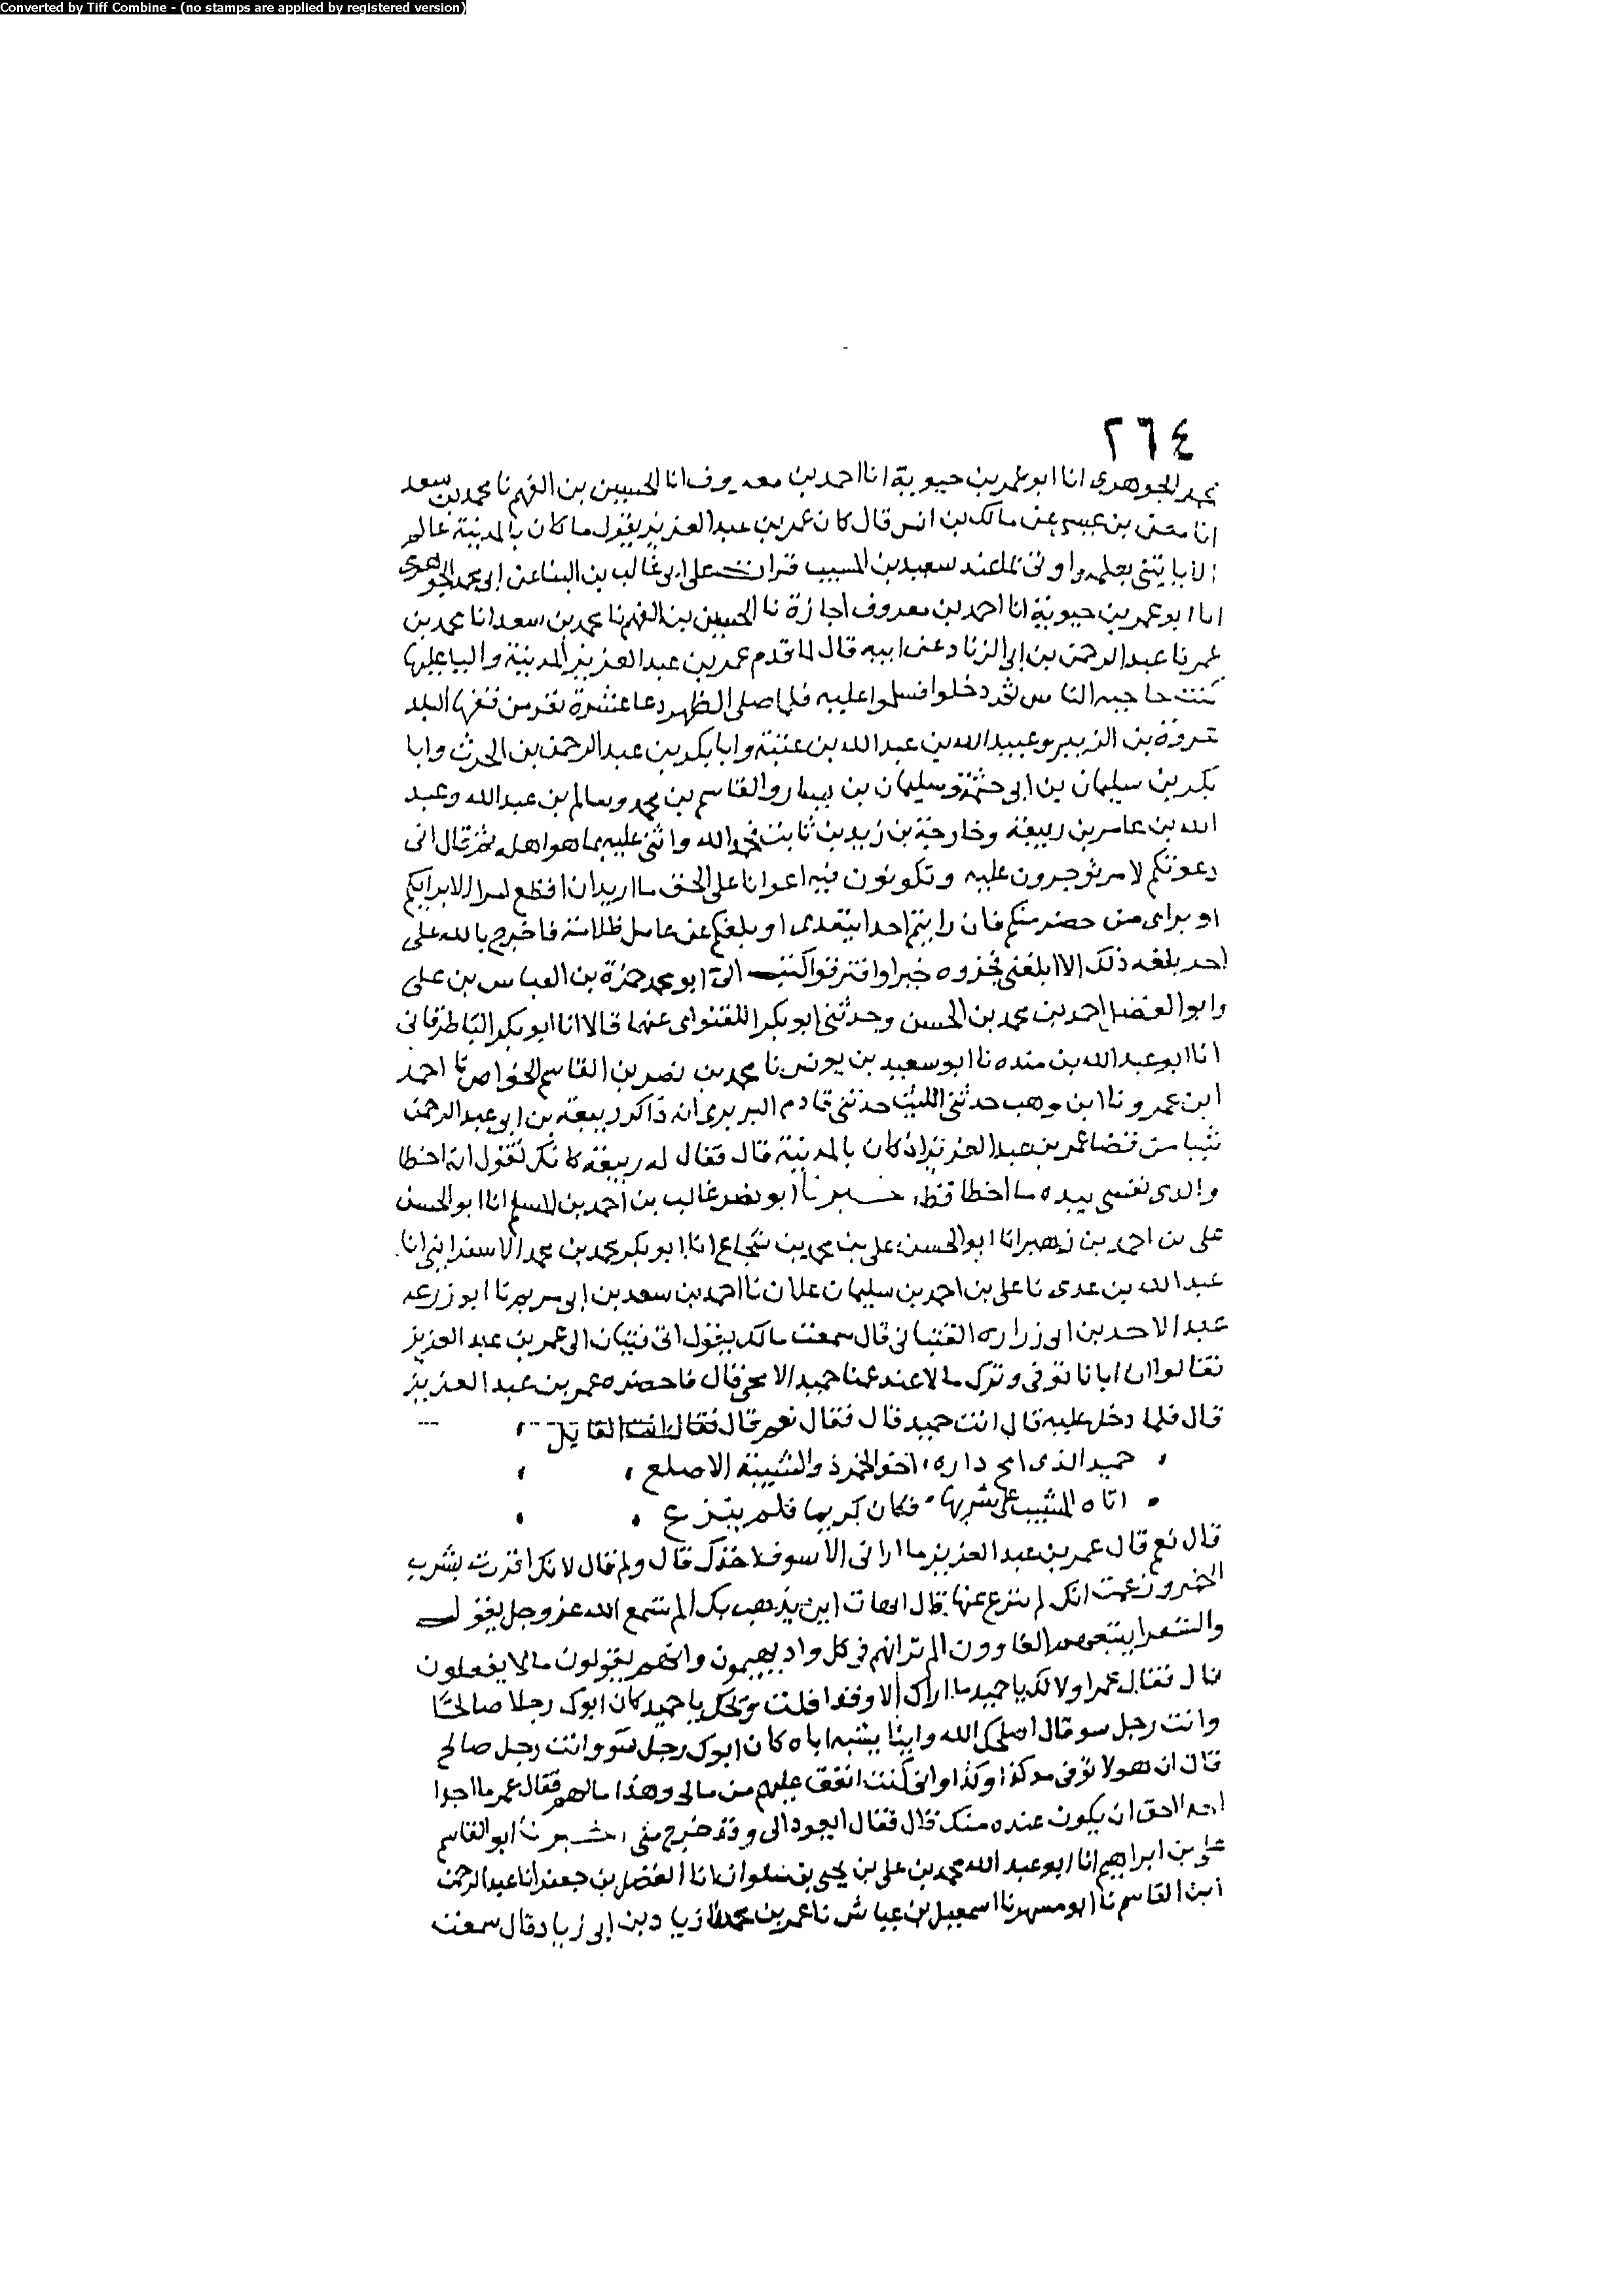 Converted by Tiff Combine - (no stamps are applied by registered version)
٢٦٤
محمد الجوهرى انا ابو عمر بن حيوية انا احمد بن معروف انا الحسين بن الفهم نا محمد بن سعد
انا معن بن عيسى عن مالك بن انس قال كان عمر بن عبد العزيز يقول ما كان بالمدينة عالم
الا ياتينى بعلمه واوتى بما عند سعيد بن المسيب قرات على ابى غالب بن البنا عن ابى محمد الجوهرى
انا ابو عمر بن حيوية انا احمد بن معروف اجازة نا الحسين بن الفهم نا محمد بن سعد انا محمد بن
عمر نا عبد الرحمن بن ابى الزناد عن ابيه قال لما قدم عمر بن عبد العزيز المدينة واليا عليها
كتب حاجبه الناس ثم دخلوا فسلموا عليه فلما صلى الظهر دعا عشرة نفر من فقها البلد
عروة بن الزبير وعبيد الله بن عبد الله بن عتبة وابا بكر بن عبد الرحمن بن الحرث وابا
بكر بن سليمان بن ابى حثمة وسليمان بن يسار والقاسم بن محمد وسالم بن عبد الله وعبد
الله بن عامر بن ربيعة وخارجة بن زيد بن ثابت فحمد الله واثنى عليه بما هو اهله ثم قال انى
دعوتكم لامر توجرون عليه وتكونون فيه اعوانا على الحق ما اريد ان اقطع امرا الا برايكم
او براى من حضر منكم فان رايتم احدا يتعدى او بلغكم عن عامل ظلامة فاحرج بالله على
احد بلغه ذلك الا ابلغنى فجزوه خيرا وافترقوا كتب الى ابو محمد حمزة بن العباس بن على
وابو الفضل احمد بن محمد بن الحسن وحدثنى ابو بكر اللفتوانى عنهما قالا انا ابو بكر الباطرقانى
انا ابو عبد الله بن منده نا ابو سعيد بن يونس نا محمد بن نصر بن القاسم الخواص نا احمد
ابن عمرو نا ابن وهب حدثنى الليث حدثنى قادم البربرى انه ذاكر ربيعة بن ابى عبد الرحمن
شيا من قضا عمر بن عبد العزيز اذ كان بالمدينة قال فقال له ربيعة كانك تقول انه اخطا
والذى نفسى بيده ما اخطا قط، خبرنا ابو نصر غالب بن احمد بن المسلم انا ابو الحسن
على بن احمد بن زهير انا ابو الحسن على بن محمد بن شجاع انا ابو بكر محمد بن محمد الاسفراينى انا
عبد الله بن عدى نا على بن احمد بن سليمان علان نا احمد بن سعد بن ابى مريم نا ابو زرعه
عبد الاحد بن ابى زراره القتبانى قال سمعت مالك يقول اتى فتيان الى عمر بن عبد العزيز
فقالوا ان ابانا توفى وترك مالا عند عمنا حميد الامجى قال فاحضره عمر بن عبد العزيز
قال فلما دخل عليه قال انت حميد قال فقال نعم قال فقال انت القايل
حميد الذى امج داره، اخو الخمر ذو الشيبة الاصلع
اتاه المشيب على شربها، فكان كريما فلم ينزع
قال نعم قال عمر بن عبد العزيز ما ارانى الا سوف احدك قال ولم قال لانك اقررت بشرب
الخمر وزعمت انك لم تنزع عنها قال ايهات اين يذهب بك الم تسمع الله عز وجل يقول
والشعرا يتبعهم الغاوون الم تر انهم فى كل واد يهيمون وانهم يقولون ما لا يفعلون
قال فقال عمر اولا لك يا حميد ما اراك الا وقد افلت ويحك يا حميد كان ابوك رجلا صالحا
وانت رجل سو قال اصلحك الله واينا يشبه اباه كان ابوك رجل سو وانت رجل صالح
قال ان هولا توفى مذ كذا وكذا وانى كنت انفق عليهم من مالى وهذا مالهم فقال عمر ما احد
احد احق ان يكون عنده منك قال فقال ايعود الى وقد خرج منى، خبرنا ابو القاسم
على بن ابراهيم انا ابو عبد الله محمد بن على بن يحيى بن سلوان انا الفضل بن جعفر انا عبد الرحمن
ابن القاسم نا ابو مسهر نا اسمعيل بن عياش نا عمر بن محمد زياد بن ابى زياد قال سمعت